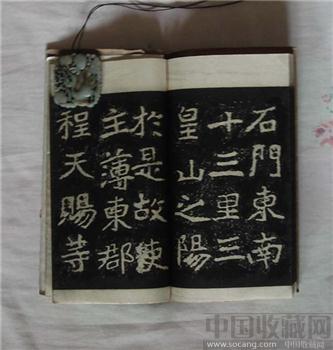 石門東南
十三里三
皇山之陽
於是故吏
主薄東郡
程天賜等
中国收藏网
www.socang.com